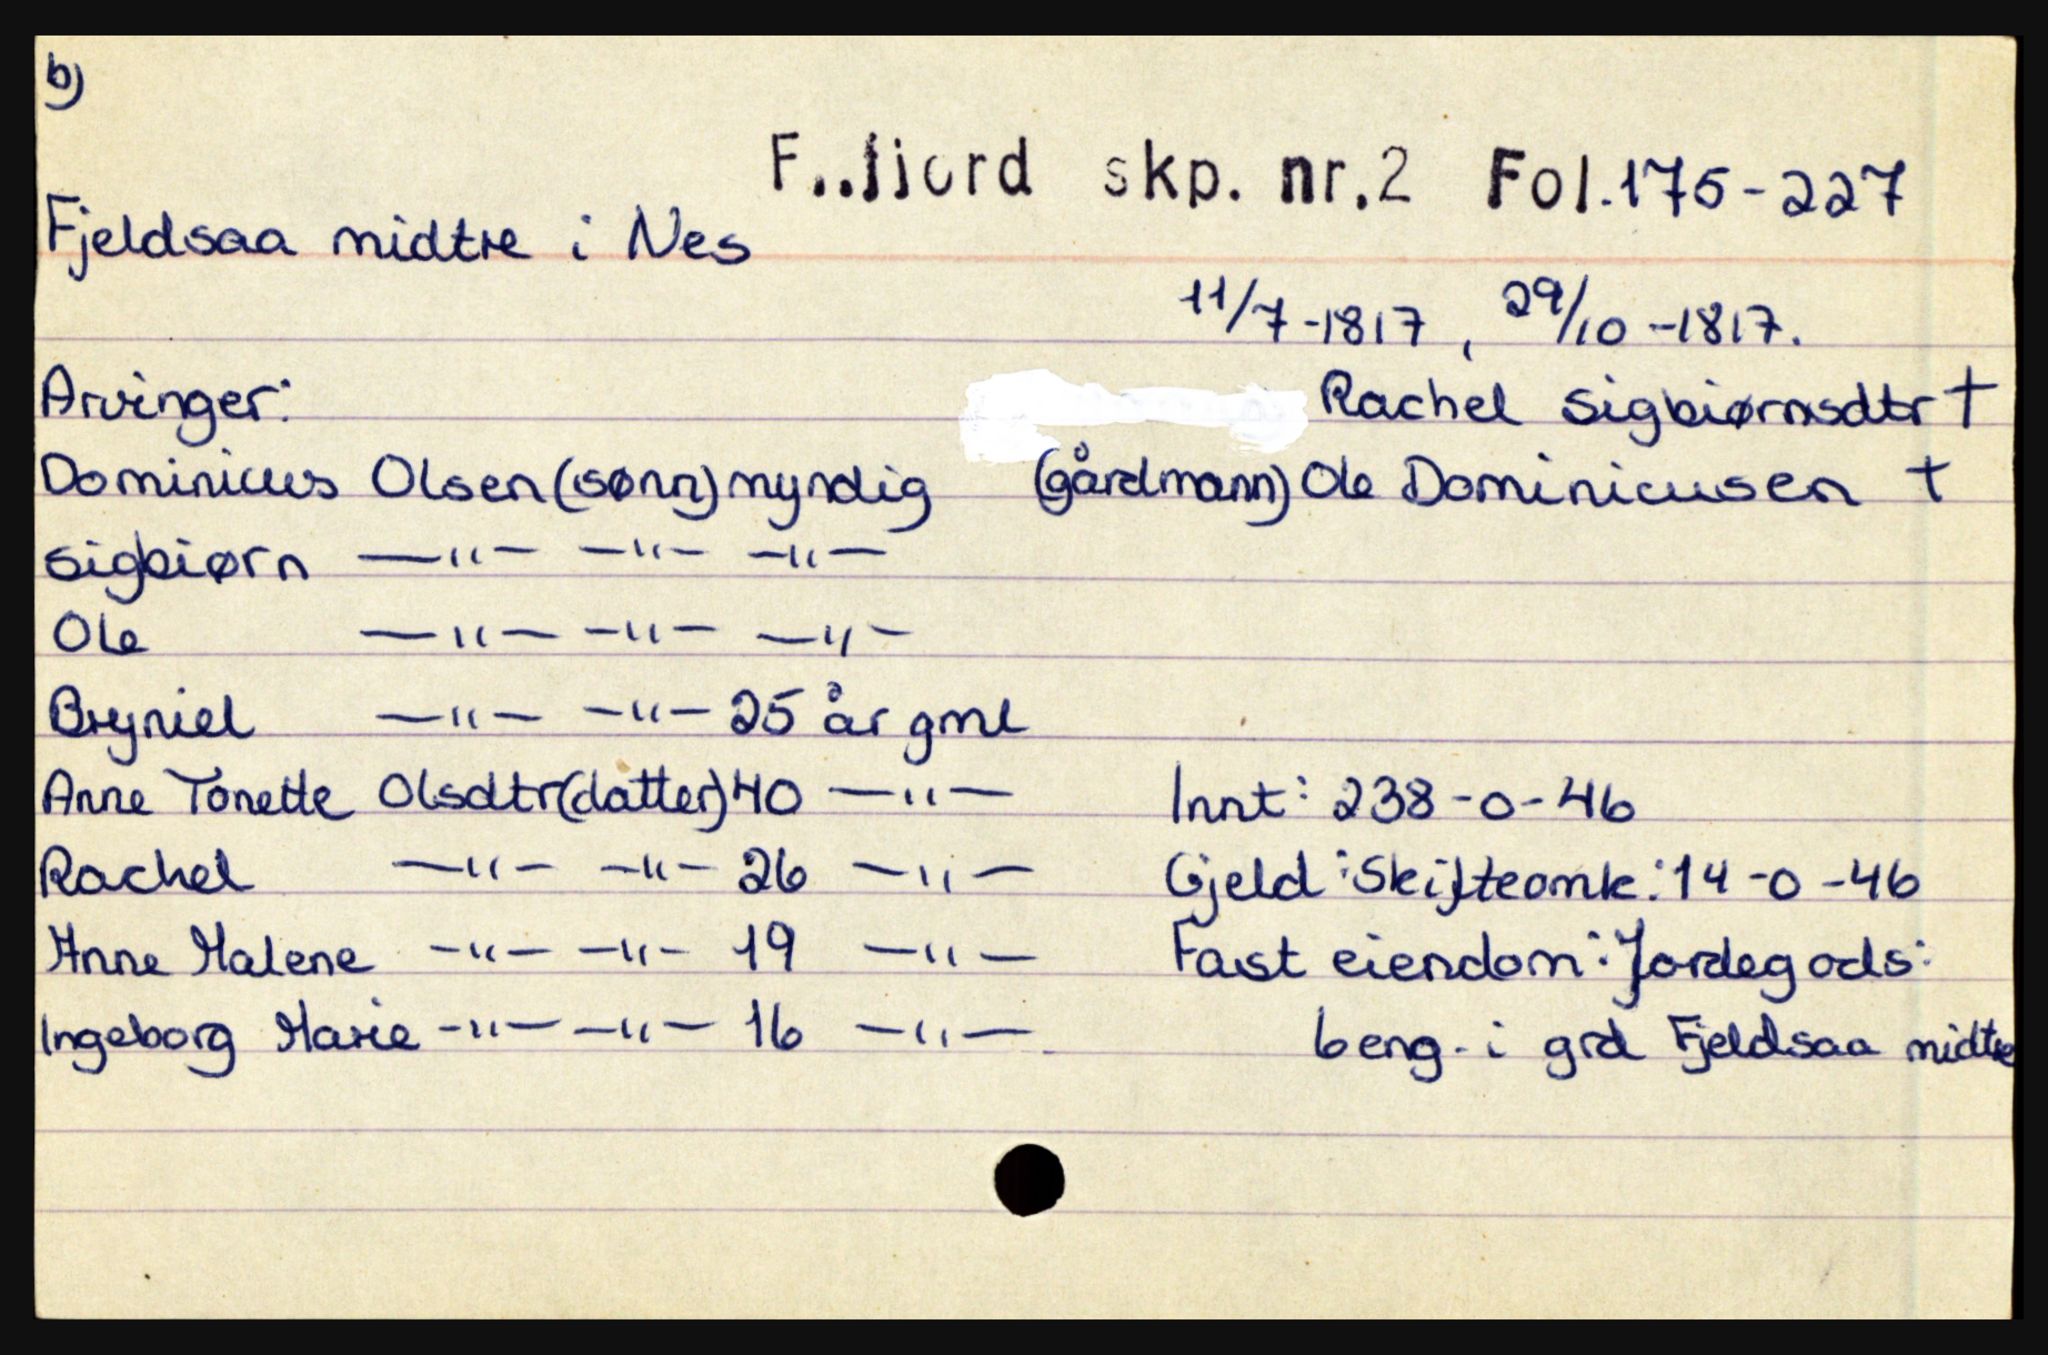 b)
F..fjord skp. nr.2 Fol.175-227
Fjeldsaa midtre i Nes
11/7-1817, 29/10-1817.
Arvinger: Rachel Sigbiørnsdtr †
Dominicus Olsen (sønn) myndig (gårdmann) Ole Dominicusen †
Sigbiørn —"— —"— —"—
Ole —"— —"— —"—
Bryniel —"— —"— 25 år gml
Anne Tonette Olsdtr (datter) 40 —"— Innt: 238-0-46
Rachel —"— —"— 26 —"— Gjeld: Skifteomk: 14-0-46
Anne Malene —"— —"— 19 —"— Fast eiendom: Jordegods:
Ingeborg Marie —"— —"— 16 —"— beng. i grd Fjeldsaa midtre